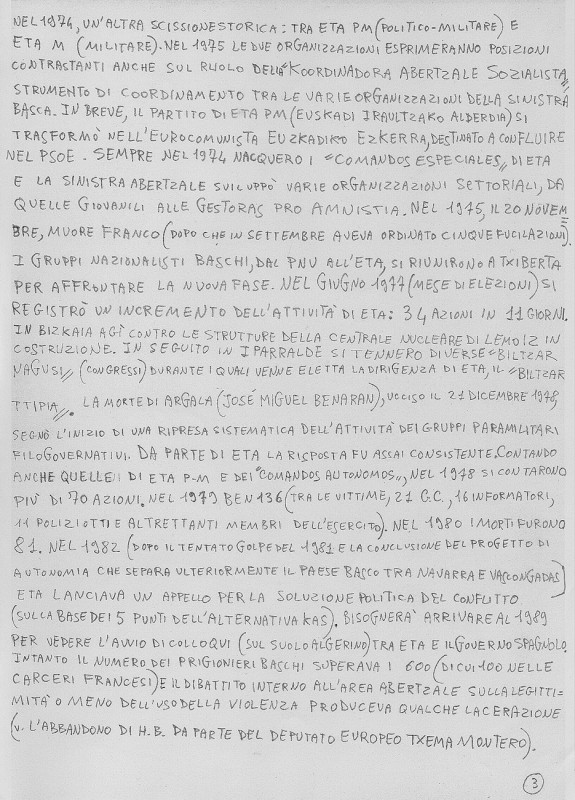 NEL 1974, UN'ALTRA SCISSIONE STORICA: TRA ETA PM (POLITICO-MILITARE) E
ETA M (MILITARE). NEL 1975 LE DUE ORGANIZZAZIONI ESPRIMERANNO POSIZIONI
CONTRASTANTI ANCHE SUL RUOLO DELLA "KOORDINADORA ABERTZALE SOZIALISTA",
STRUMENTO DI COORDINAMENTO TRA LE VARIE ORGANIZZAZIONI DELLA SINISTRA
BASCA. IN BREVE, IL PARTITO DI ETA PM (EUSKADI IRAULTZAKO ALDERDIA) SI
TRASFORMÒ NELL'EUROCOMUNISTA EUZKADIKO EZKERRA, DESTINATO A CONFLUIRE
NEL PSOE. SEMPRE NEL 1974 NACQUERO I "COMANDOS ESPECIALES" DI ETA
E LA SINISTRA ABERTZALE SVILUPPÒ VARIE ORGANIZZAZIONI SETTORIALI, DA
QUELLE GIOVANILI ALLE GESTORAS PRO AMNISTIA. NEL 1975, IL 20 NOVEM
BRE, MUORE FRANCO (DOPO CHE IN SETTEMBRE AVEVA ORDINATO CINQUE FUCILAZIONI).
I GRUPPI NAZIONALISTI BASCHI, DAL PNV ALL'ETA, SI RIUNIRONO A TXIBERTA
PER AFFRONTARE LA NUOVA FASE. NEL GIUGNO 1977 (MESE DI ELEZIONI) SI
REGISTRÒ UN INCREMENTO DELL'ATTIVITÀ DI ETA: 34 AZIONI IN 11 GIORNI.
IN BIZKAIA AGÌ CONTRO LE STRUTTURE DELLA CENTRALE NUCLEARE DI LEMOIZ IN
COSTRUZIONE. IN SEGUITO IN IPARRALDE SI TENNERO DIVERSE "BILTZAR
NAGUSI" (CONGRESSI) DURANTE I QUALI VENNE ELETTA LA DIRIGENZA DI ETA, IL "BILTZAR
TTIPIA". LA MORTE DI ARGALA (JOSÉ MIGUEL BENARAN), UCCISO IL 21 DICEMBRE 1978,
SEGNÒ L'INIZIO DI UNA RIPRESA SISTEMATICA DELL'ATTIVITÀ DEI GRUPPI PARAMILITARI
FILOGOVERNATIVI. DA PARTE DI ETA LA RISPOSTA FU ASSAI CONSISTENTE. CONTANDO
ANCHE QUELLE DI ETA P-M E DEI "COMANDOS AUTONOMOS", NEL 1978 SI CONTARONO
PIÙ DI 70 AZIONI. NEL 1979 BEN 136 (TRA LE VITTIME, 21 G.C., 16 INFORMATORI,
11 POLIZIOTTI E ALTRETTANTI MEMBRI DELL'ESERCITO). NEL 1980 I MORTI FURONO
81. NEL 1982 (DOPO IL TENTATO GOLPE DEL 1981 E LA CONCLUSIONE DEL PROGETTO DI
AUTONOMIA CHE SEPARA ULTERIORMENTE IL PAESE BASCO TRA NAVARRA E VASCONGADAS)
ETA LANCIAVA UN APPELLO PER LA SOLUZIONE POLITICA DEL CONFLITTO
(SULLA BASE DEI 5 PUNTI DELL'ALTERNATIVA KAS). BISOGNERÀ ARRIVARE AL 1989
PER VEDERE L'AVVIO DI COLLOQUI (SUL SUOLO ALGERINO) TRA ETA E IL GOVERNO SPAGNOLO.
INTANTO IL NUMERO DEI PRIGIONIERI BASCHI SUPERAVA I 600 (DI CUI 100 NELLE
CARCERI FRANCESI) E IL DIBATTITO INTERNO ALL'AREA ABERTZALE SULLA LEGITTI-
MITÀ O MENO DELL'USO DELLA VIOLENZA PRODUCEVA QUALCHE LACERAZIONE
(V. L'ABBANDONO DI H.B. DA PARTE DEL DEPUTATO EUROPEO TXEMA MONTERO).
3